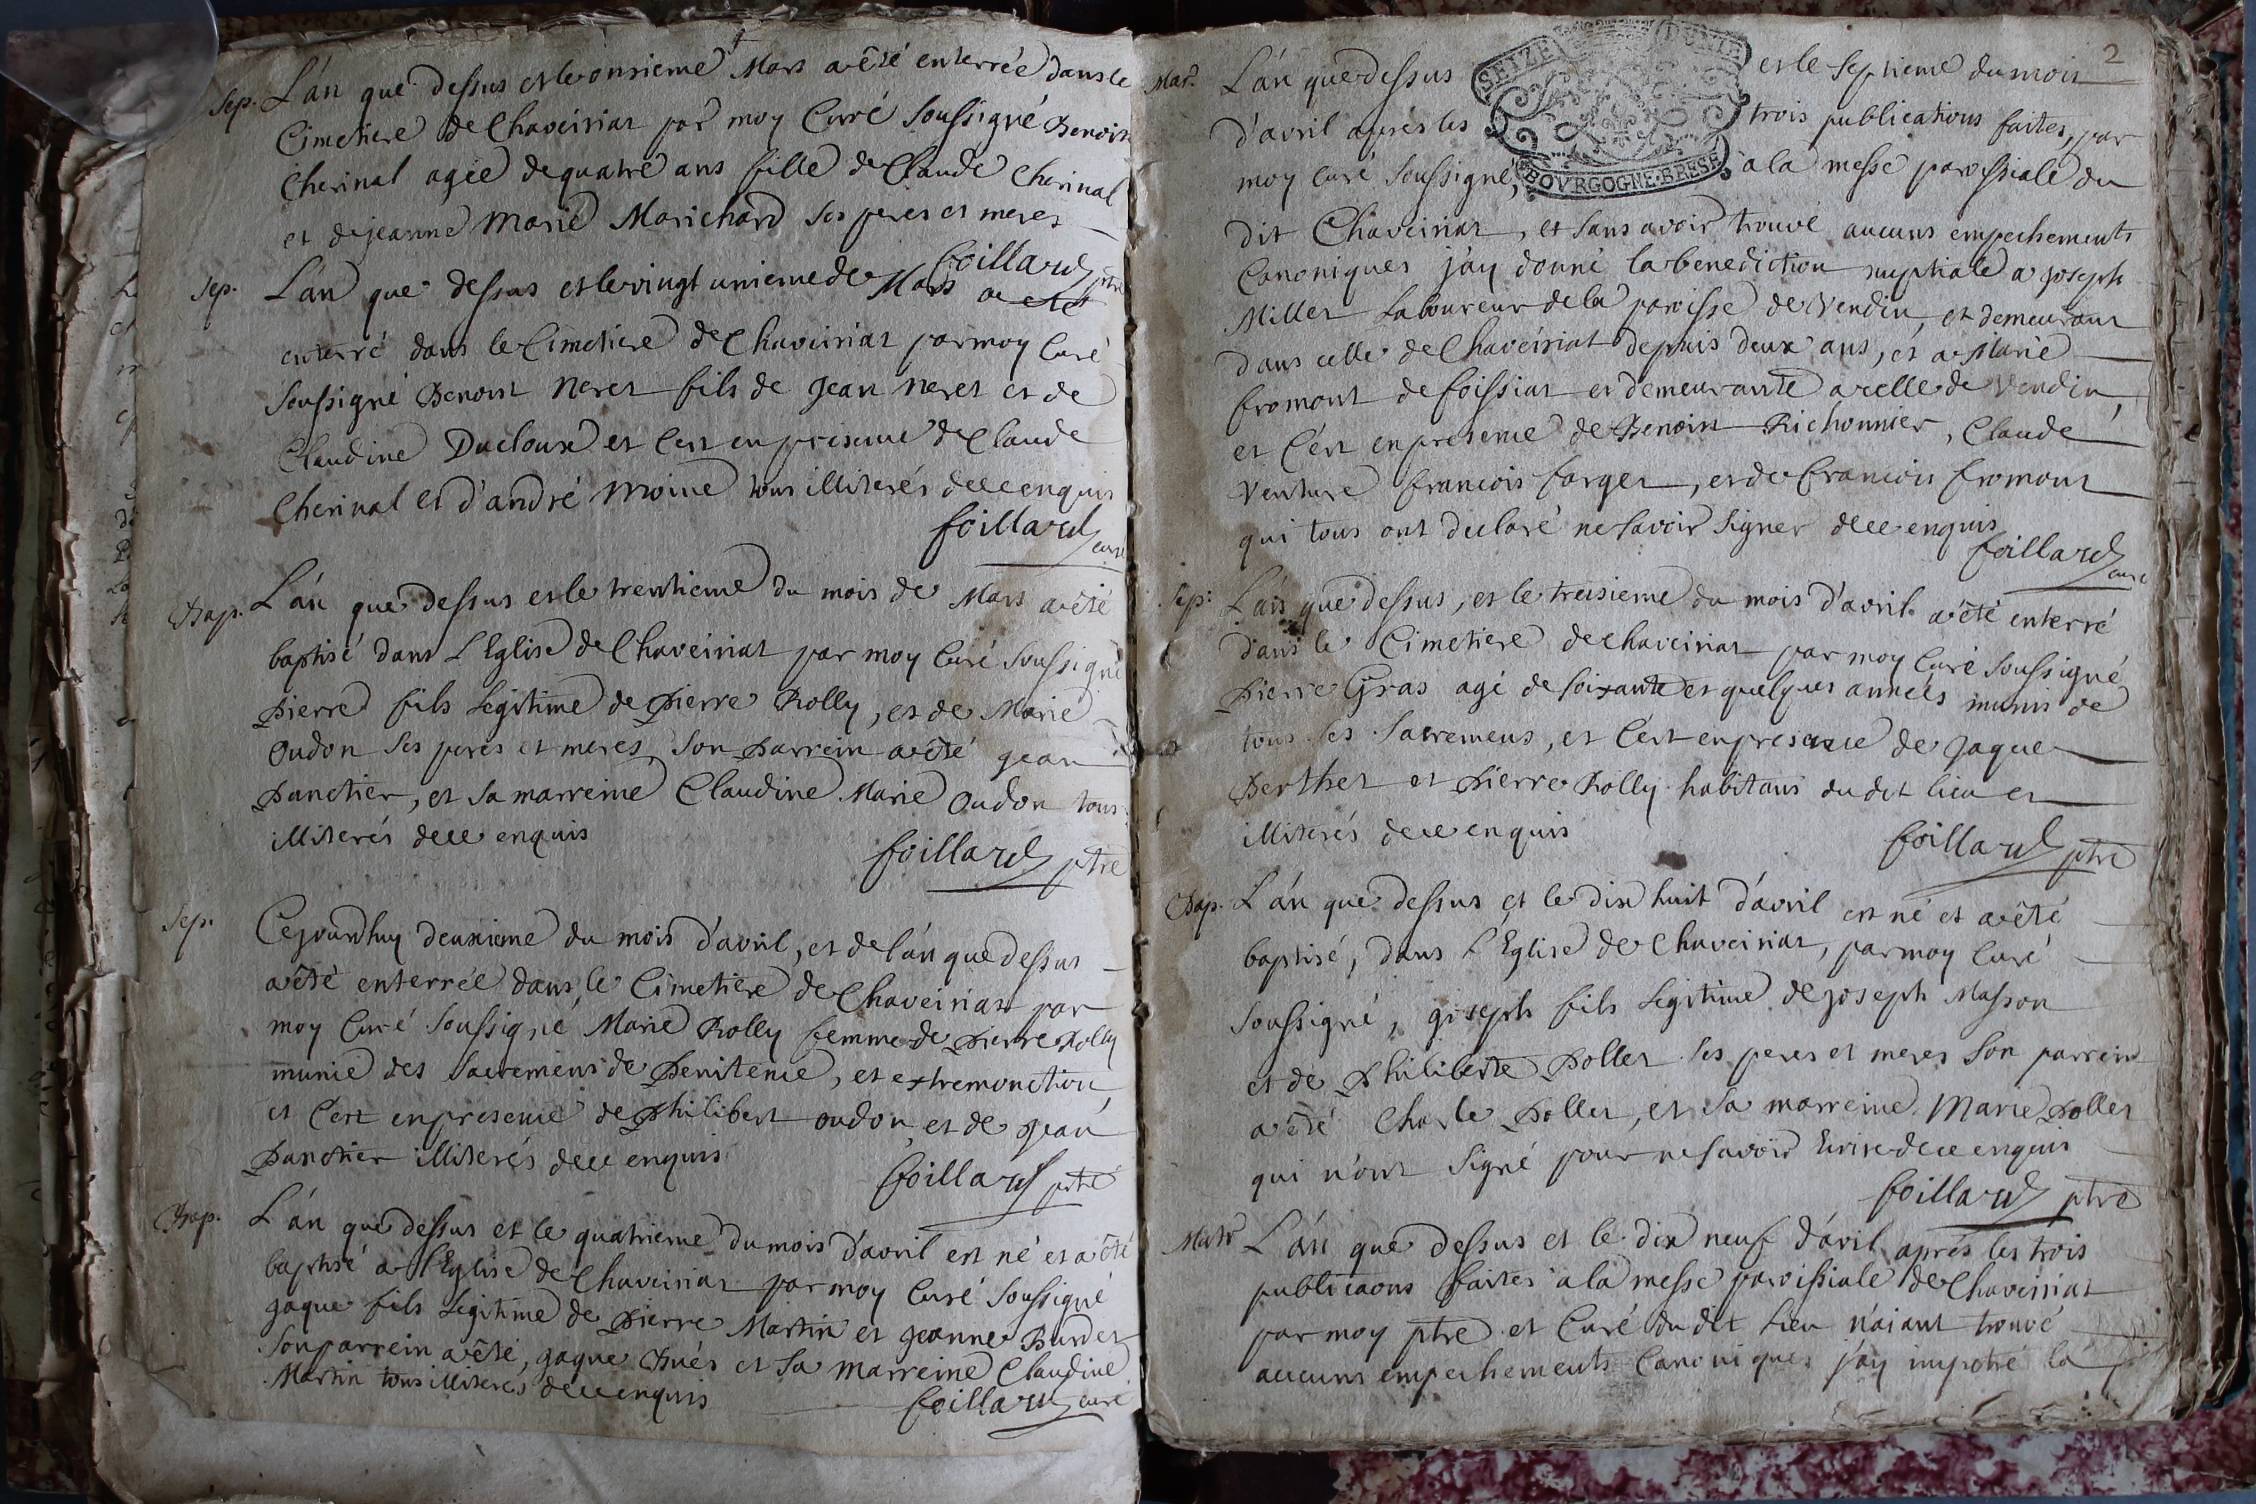 Sep. L'an que dessus et le onsieme Mars a êté enterrée dans le
Cimetiere de Chaveiriat par moy Curé soussigné Benoite
Cherinal agée de quatre ans fille de Claude Cherinal
et de jeanne Marie Marichard ses peres et meres
foillard ptre
Sep. L'an que dessus et le vingt unieme de Mars a eté
enterré dans le Cimetiere de Chaveiriat par moy Curé
soussigné Benoist Neret fils de Jean Neret et de
Claudine Ducloux et c'est en presence de Claude
Cherinal et d'andré Moine tous illiterés de ce enquis
foillard curé
Bap. L'an que dessus et le trentieme du mois de Mars a êté
baptisé dans l'Eglise de Chaveiriat par moy Curé soussigné
Pierre fils legitime de Pierre Rolly, et de Marie
Oudon ses peres et meres, son parrein a êté jean
Panetier, et sa marreine Claudine Marie Oudon tous
illiterés de ce enquis
foillard ptre
Sep. Cejourdhuy deuxieme du mois d'avril, et de l'an que dessus
a êté enterrée dans le Cimetiere de Chaveiriat par
moy Curé soussigné Marie Rolly femme de Pierre Rolly
munie des sacremens de Penitence, et extremonction,
et c'est en presence de Philibert oudon et de jean
Panetier illiterés de ce enquis
foillard ptre
Bap. L'an que dessus et le quatrieme du mois d'avril est né et a êté
baptisé a l'Eglise de Chaveiriat par moy Curé soussigné
jaque fils legitime de Pierre Martin et jeanne Burdet
son parrein a êté, jaque Bués et sa marreine Claudine
Martin tous illiterés de ce enquis
foillard curé
2
SEIZE DENIE
BOVRGOGNE·BRESE
Mar. L'an que dessus et le septieme du mois
d'avril aprés les trois publications faites, par
moy Curé soussigné, a la messe paroissiale du
dit Chaveiriat, et sans avoir trouvé aucuns empechements
Canoniques j'ay donné la benediction nuptiale a joseph
Millet Laboureur de la paroisse de Vendin, et demeurant
dans celle de Chaveiriat depuis deux ans, et a Marie
fromont de foissiat et demeurante a celle de Vendin,
et c'est en presence de Benoist Richonnier, Claude
Venture françois farget, et de francois fromont
qui tous ont declaré ne savoir signer de ce enquis
foillard curé
Sep: L'an que dessus, et le treisieme du mois d'avril a êté enterré
dans le Cimetiere de chaveiriat par moy Curé soussigné
Pierre Gras agé de soixante et quelques années munis de
tous ses sacremens, et c'est en presence de jaque
Berthet et Pierre Rolly habitans du dit lieu et
illiterés de ce enquis
foillard ptre
Bap. L'an que dessus et le dix huit d'avril est né et a êté
baptisé, dans l'Eglise de Chaveiriat, par moy Curé
soussigné, joseph fils legitime de joseph Masson
et de Philiberte Pollet ses peres et meres son parrein
a êté Charle Pollet, et sa marreine Marie Pollet
qui n'ont signé pour ne savoir Ecrire de ce enquis
foillard ptre
L'an que dessus et le dix neuf d'avril aprés les trois
publicaons faites a la messe paroissiale de Chaveiriat
par moy ptre et Curé du dit Lieu n'aiant trouvé
aucuns empechements Canoniques j'ay impetré la